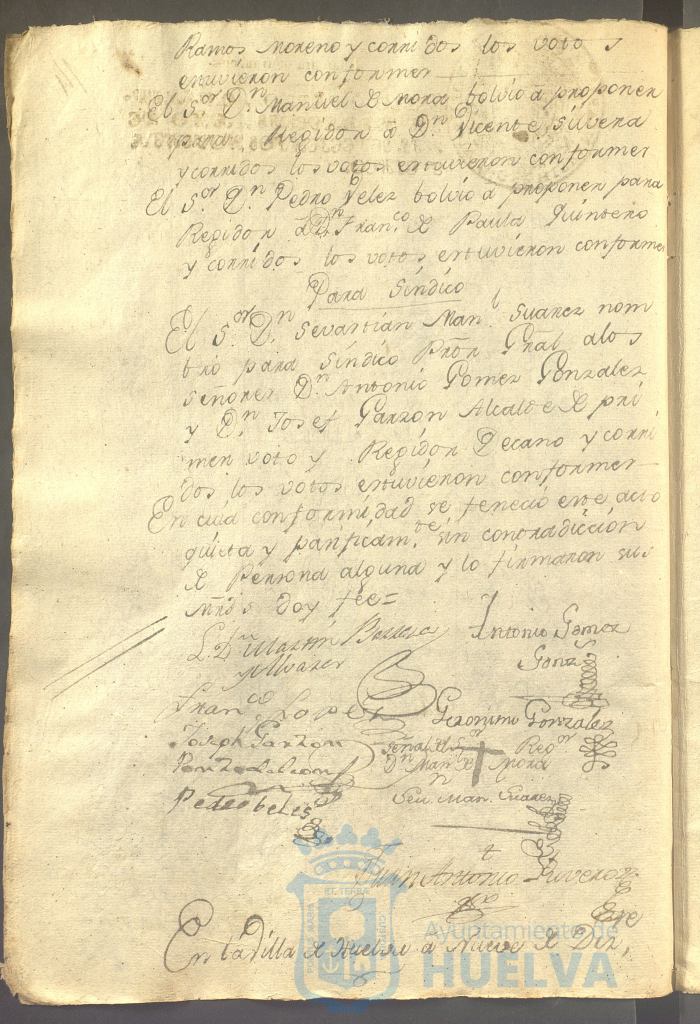 Ramos Moreno y corridos los votos
estuvieron conformes
El S.or D.n Manuel de Mora bolvio a proponer
para Regidor a D.n Vicente Silvera
y corridos los votos estuvieron conformes
El S.or D.n Pedro Velez bolvio a proponer para
Regidor a D.n Fran.co de Paula Quintero
y corridos los votos estuvieron conformes
Para Sindico
El S.or D.n Sevastian Man.l Suarez nom
bro para Sindico Pror Gral alos
Señores D.n Antonio Gomez Gonzalez
y D.n Josef Garzon Alcalde de pri
mer voto y Regidor Decano y corri
dos los votos estuvieron conformes
En cuia conformidad se feneció este acto
quieta y pacificam.te sin contradiccion
de Persona alguna y lo firmaron sus
Mrds doy fee=
L.do Martin Barrera
y Alvarez
Antonio Gomez
Gonz
Fran.co Lopez
Geronimo Gonzalez
Joseph Garzon
Ponze de Leon
señal del S.or Reg.or
D.n Man.l de Mora
Pedro beles
Sev.n Man. Suarez
Juan Antonio
En la Villa de Huelva a Nueve de Diz,
Ayuntamiento de
HUELVA